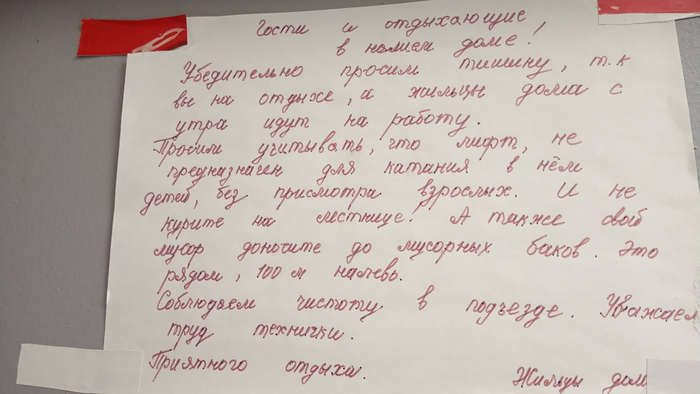 Гости и отдыхающие
в нашем доме!
Убедительно просим тишину, т.к
вы на отдыхе, а жильцы дома с
утра идут на работу.
Просим учитывать, что лифт, не
предназначен для катания в нём
детей, без присмотра взрослых. И не
курите на лестнице! А также свой
мусор доносите до мусорных баков. Это
рядом, 100 м налево.
Соблюдаем чистоту в подъезде. Уважаем
труд технички.
Приятного отдыха.
Жильцы дом